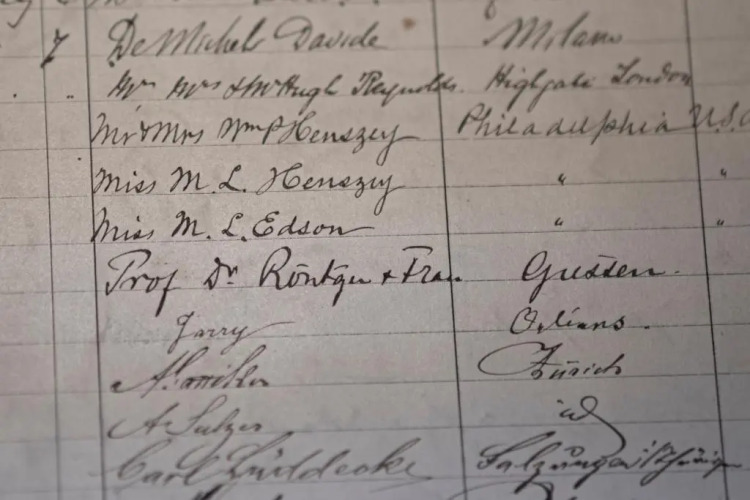 7 De Michel Davide Milano
" Mr Mrs & Mr Hugh Reynolds. Highgate London
Mr & Mrs Wm P Henszey Philadelphia U.S.
Miss M. L. Henszey " "
Miss M. L. Edson " "
Prof Dr Röntgen + Frau Giessen.
Jarry Orléans.
Zürich
A Sulzer id
Carl Lüddecke Salzungen i/Thüringen